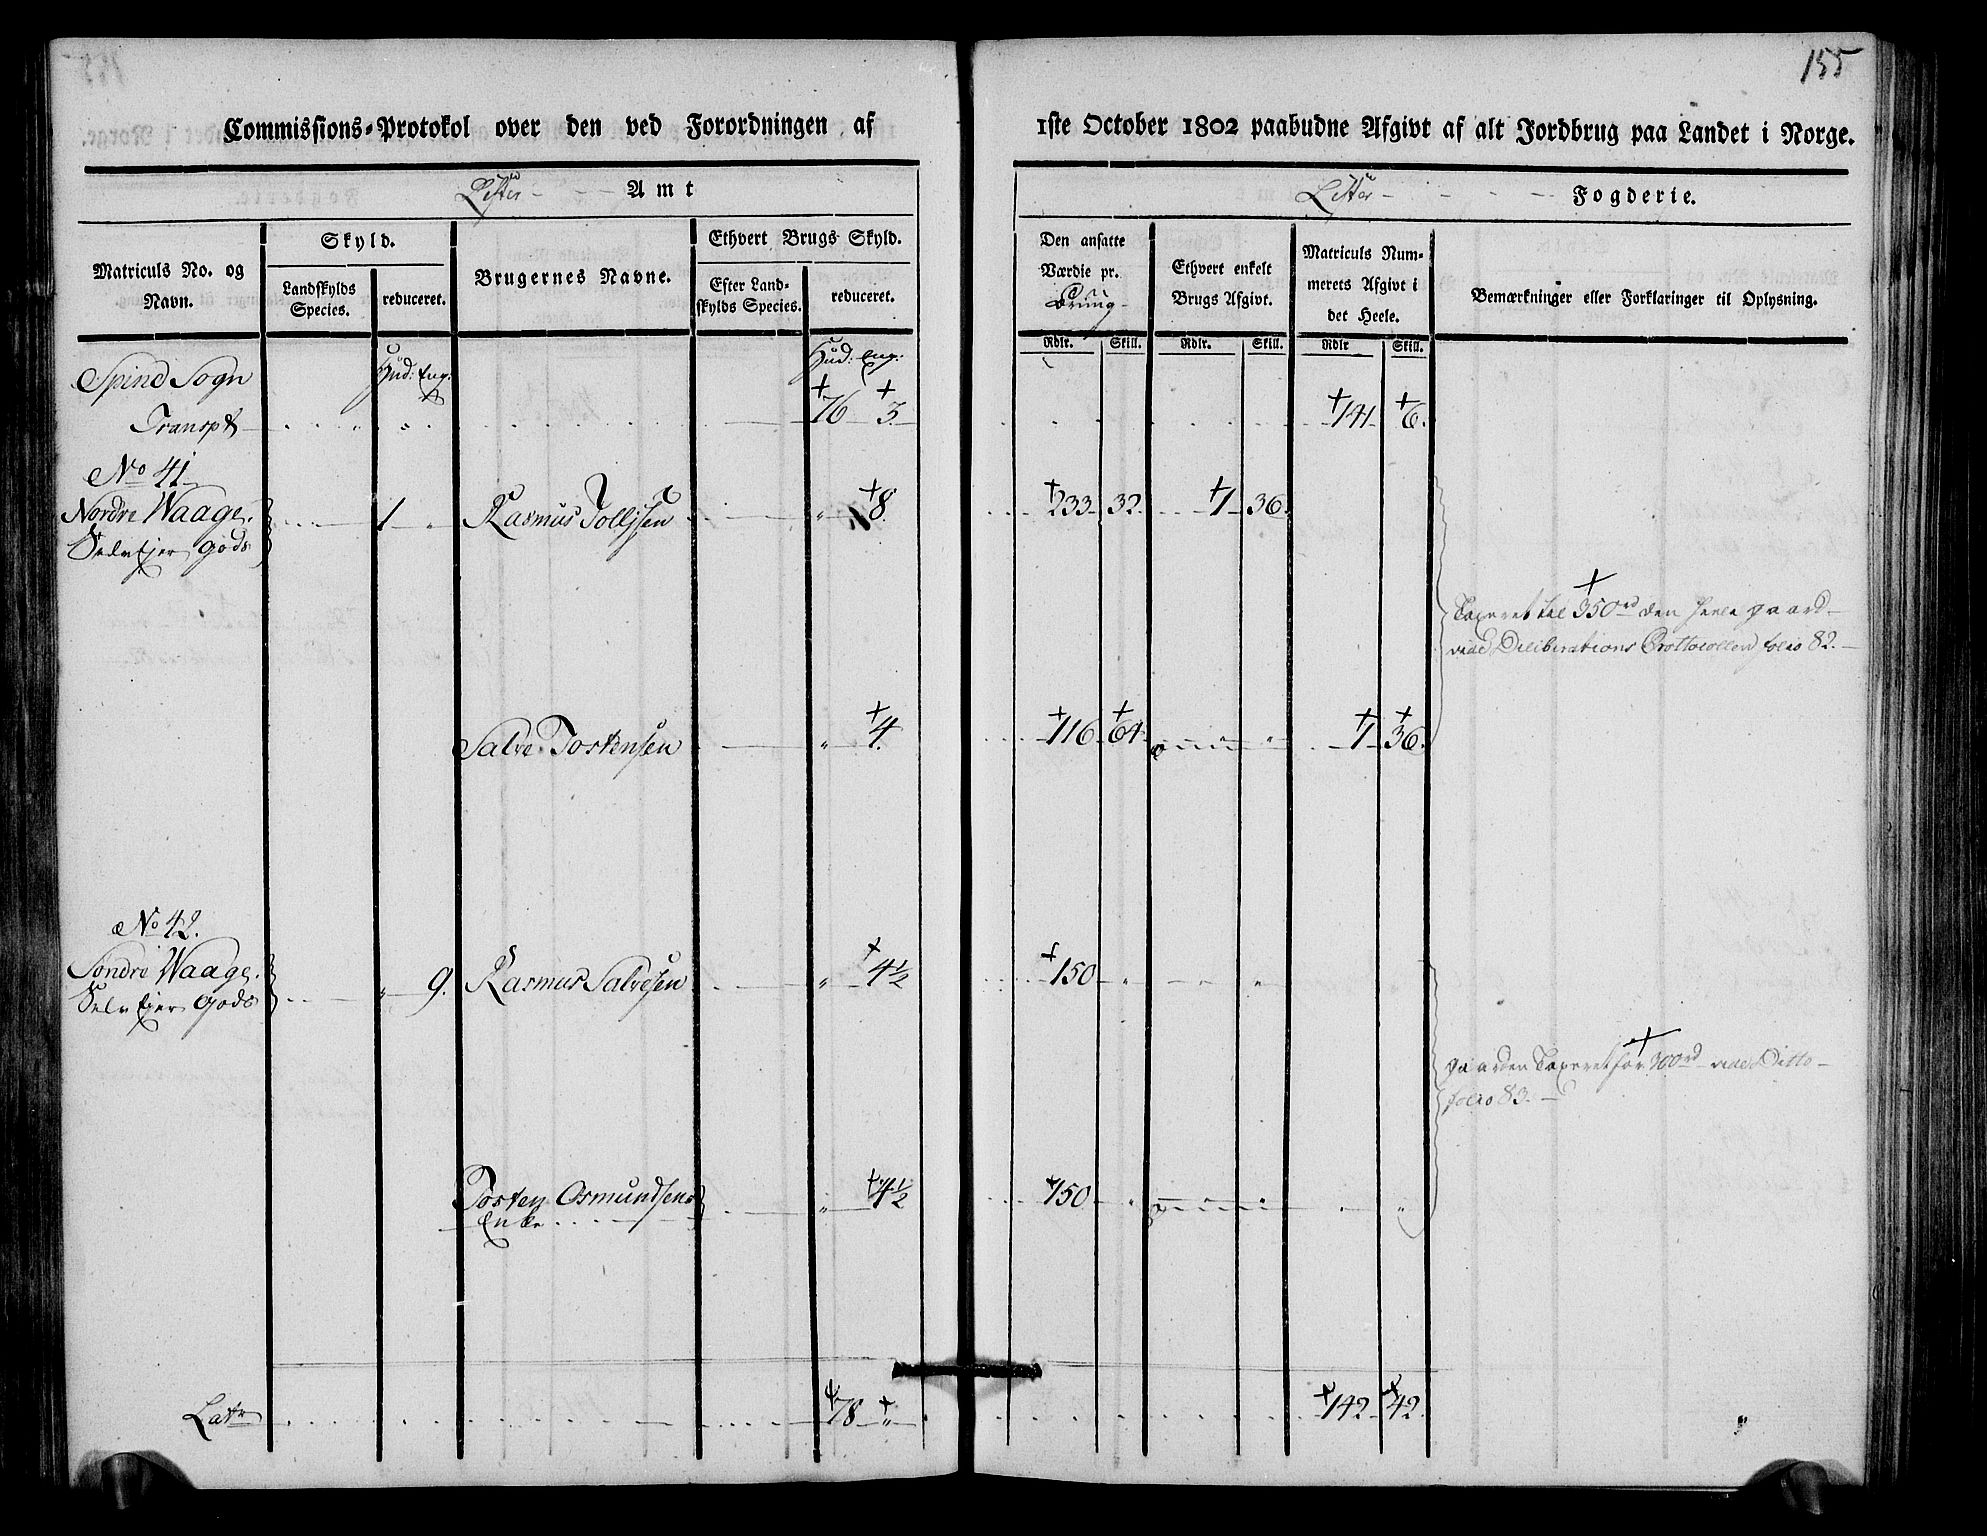 155
Commissions-Protokol over den ved Forordningen af 1ste October 1802 paabudne Afgivt af alt Jordbrug paa Landet i Norge.
Lister Amt
Lister Fogderie.
Matriculs No. og Navn.
Skyld.
Landskylds Species.
reduceret.
Brugernes Navne.
Ethvert Brugs Skyld.
Efter Landskylds Species.
reduceret.
Den ansatte Værdie pr. Brug
Ethvert enkelt Brugs Afgivt.
Matriculs Nummerets Afgivt i det Heele.
Bemærkninger eller Forklaringer til Oplysning.
Rdlr. Skill. Rdlr. Skill. Rdlr Skill.
Spind Sogn Hud: Eng: Hud: Eng:
Transpt 76 3. 141 6.
No 41
Nordre Waage. 1 " Rasmus Tollisen " 8. 233 32. 1 36.
Selvejer Gods
Taxeret til 350rd den heele gaard
vide Deliberations Prottocollen folio 82.
Salve Tostensen " 4. 116 64 1 36.
No 42.
Søndre Waage. " 9. Rasmus Salvesen " 4½ 150 "
Selvejer Gods
gaarden Taxeret for 300rd vide Ditto
folio 83.
Tosten Osmundsens " 4½ 150 "
Enke
Latr 78 " 142 42.